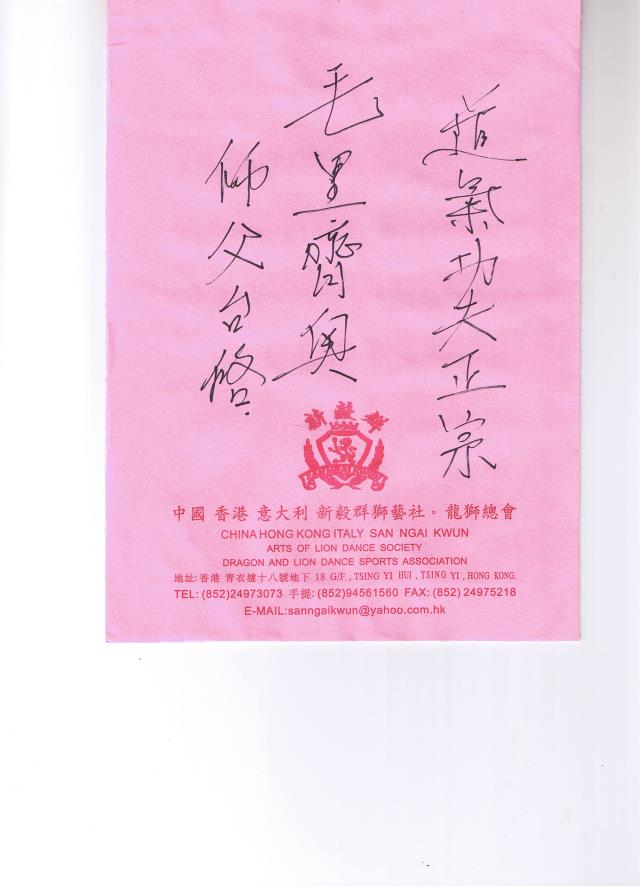 道氣功夫正宗
毛里齊奧
師父台啓
中國 香港 意大利 新毅群獅藝社。龍獅總會
CHINA HONG KONG ITALY SAN NGAI KWUN
ARTS OF LION DANCE SOCIETY
DRAGON AND LION DANCE SPORTS ASSOCIATION
地址: 香港 青衣墟十八號地下 18 G/F , TSING YI HUI , TSING YI , HONG KONG.
TEL: (852)24973073 手提: (852)94561560 FAX: (852) 24975218
E-MAIL:sanngaikwun@yahoo.com.hk